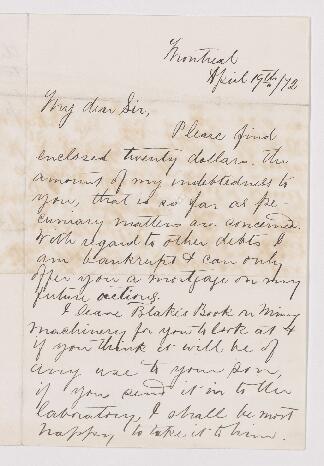 Montreal
April 19th/72
My dear Sir,
Please find
enclosed twenty dollars. the
amount of my indebtedness to
you, that is so far as pe-
cuniary matters are concerned.
With regard to other debts I
am bankrupt & can only
offer you a mortgage on my
future actions.
I leave Blake's Book on Mining
machinery for you to look at &
if you think it will be of
any use to your son,
if you send it in to the
laboratory, I shall be most
happy to take it to him.